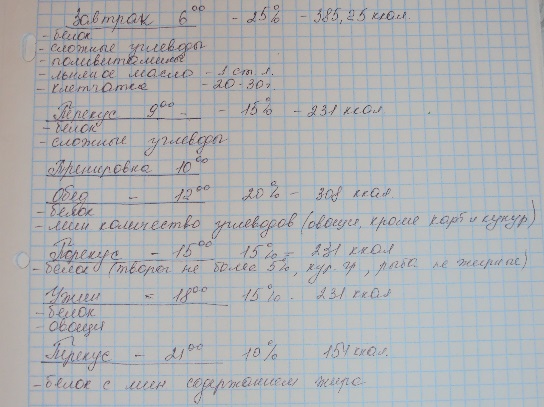 Завтрак 6⁰⁰ - 25% - 385,25 ккал.
- белок
- сложные углеводы
- поливитамины
- льняное масло - 1 ст. л.
- клетчатка - 20-30г.
Перекус 9⁰⁰ - - 15% - 231 ккал
- белок
- сложные углеводы
Тренировка 10⁰⁰
Обед - 12⁰⁰ 20% - 308 ккал.
- белок
- мин количество углеводов (овощи, кроме карт и кукур)
Перекус - 15⁰⁰ 15% - 231 ккал
- белок (творог не более 5%, кур. гр, рыба не жирная)
Ужин = 18⁰⁰ 15% - 231 ккал
- белок
- овощи
Перекус - 21⁰⁰ 10% 154 ккал.
- белок с мин содержанием жира